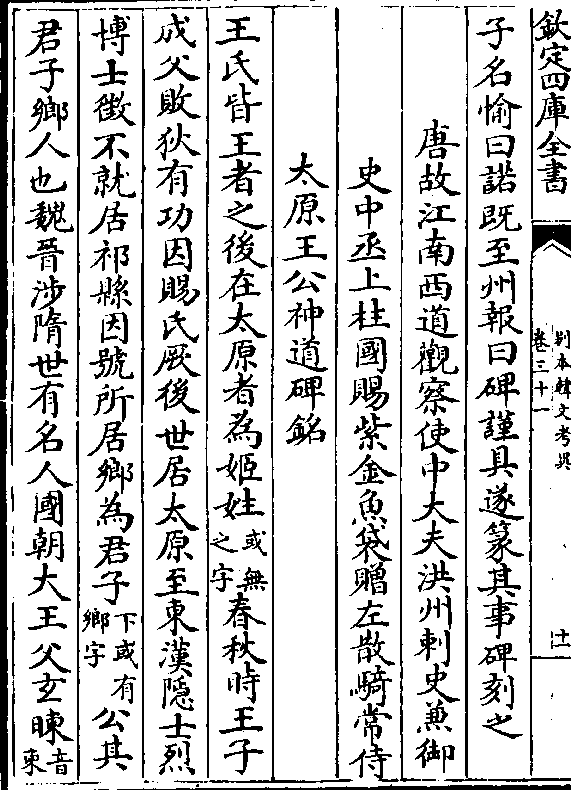 欽定四庫全書
別本韓文考異
卷三十一
十一
子名愉曰諾既至州報曰碑謹具遂篆其事碑刻之
唐故江南西道觀察使中大夫洪州刺史兼御
史中丞上柱國賜紫金魚袋贈左散騎常侍
太原王公神道碑銘
王氏皆王者之後在太原者為姬姓或無之字春秋時王子
成父敗狄有功因賜氏厥後世居太原至東漢隱士烈
博士徵不就居祁縣因號所居鄉為君子下或有鄉字公其
君子鄉人也魏晉涉隋世有名人國朝大王父玄暕音柬